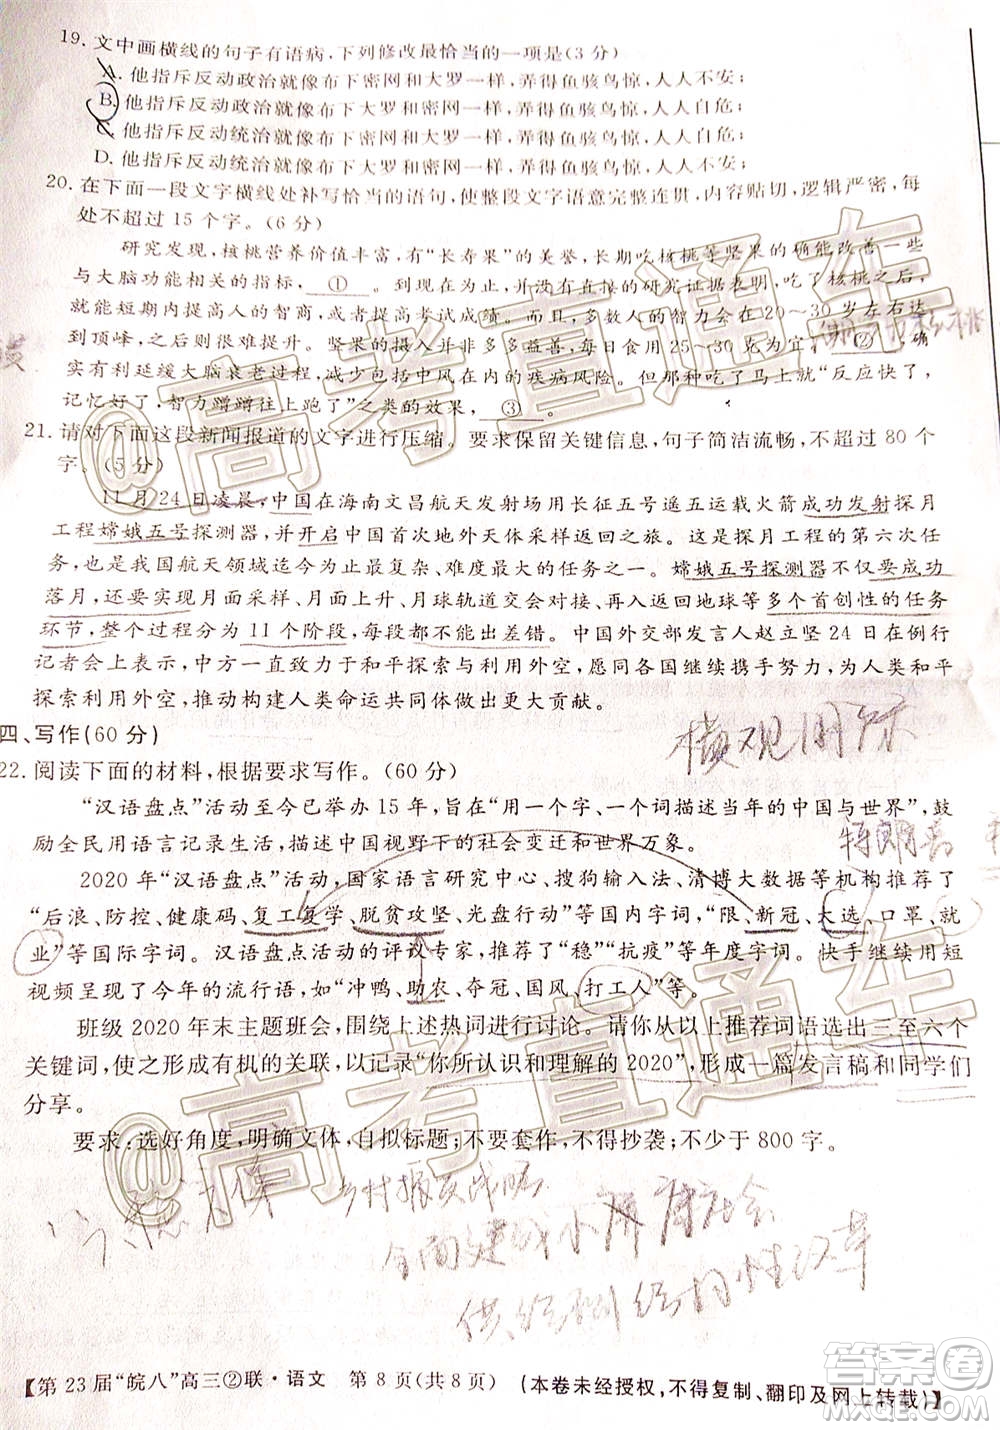 19. 文中画横线的句子有语病,下列修改最恰当的一项是(3 分)
A. 他指斥反动政治就像布下密网和大罗一样,弄得鱼骇鸟惊,人人不安;
B. 他指斥反动政治就像布下大罗和密网一样,弄得鱼骇鸟惊,人人自危;
C. 他指斥反动统治就像布下密网和大罗一样,弄得鱼骇鸟惊,人人自危;
D. 他指斥反动统治就像布下大罗和密网一样,弄得鱼骇鸟惊,人人不安;
20. 在下面一段文字横线处补写恰当的语句,使整段文字语意完整连贯,内容贴切,逻辑严密,每
处不超过 15 个字。(6 分)
研究发现,核桃营养价值丰富,有“长寿果”的美誉,长期吃核桃等坚果的确能改善一些
与大脑功能相关的指标, ① 。到现在还没有直接的研究证据表明,吃了核桃之后,
能在短期内提高人的智商,或者提高考试成绩。而且,多数人的智力会在 20～30 岁左右达
到顶峰,很难继续大幅提升。坚果的摄入并非多多益善,每日食用 25～30 克为宜, ② ,确
实有利延缓大脑衰老过程,减少包括中风在内的疾病风险。但是,吃了马上就“反应快了,
记忆好了,智力蹭蹭往上跑了”之类的效果, ③ 。
21. 请对下面这段新闻报道的文字进行压缩。要求保留关键信息,句子简洁流畅,不超过 80 个
字。(5 分)
11 月 24 日凌晨,中国在海南文昌航天发射场用长征五号遥五运载火箭成功发射探月
工程嫦娥五号探测器,并开启中国首次地外天体采样返回之旅。这是探月工程的第六次任
务,也是我国航天领域迄今为止最复杂、难度最大的任务。嫦娥五号探测器不仅要成功
落月,还要实现月面采样、月面上升、月球轨道交会对接、再入返回地球等多个首创性的任务
环节,整个过程分为 11 个阶段,每段都不能出差错。中国外交部发言人赵立坚 24 日在例行
记者会上表示,中方一直致力于和平探索与利用外空,愿同各国继续携手努力,为人类和平
探索利用外空,推动构建人类命运共同体作出更大贡献。
四、写作(60 分)
22. 阅读下面的材料,根据要求写作。(60 分)
“汉语盘点”活动至今已举办 15 年,旨在“用一个字、一个词描述当年的中国与世界”,鼓
励全民用语言记录生活,描述中国视野下的社会变迁和世界万象。
2020 年“汉语盘点”活动,国家语言研究中心、搜狗输入法、清博大数据等机构推荐了
“后浪、防控、健康码、复工复学、脱贫攻坚、光盘行动”等国内字词,“限、新冠、大选、口罩、就
业”等国际字词。汉语盘点活动的评议专家,推荐了“稳”“抗疫”等年度字词。快手继续用短
视频呈现了今年的流行语,如“冲鸭、助农、夺冠、国风、打工人”等。
班级 2020 年末主题班会,围绕上述热词进行讨论。请你从以上推荐词语选出三至六个
关键词,使之形成有机的关联,以记录“你所认识和理解的 2020”,形成一篇发言稿和同学们
分享。
要求:选好角度,明确文体,自拟标题;不要套作,不得抄袭;不少于 800 字。
乡村振兴战略
全面建成小康社会
供给侧结构性改革
【第 23 届“皖八”高三②联·语文 第 8 页(共 8 页) (本卷未经授权,不得复制、翻印及网上转载)】
@高考直通车
@高考直通车